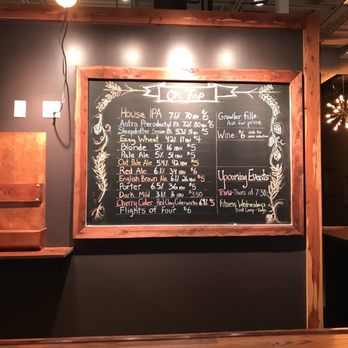 On Tap
House IPA 7.1% 70 IBU $6
Astro Pterodactyl IPA 7.2% 80 IBU $6
Sleepdrifter Session IPA 5.3% 51 IBU $5
Easy Wheat 4.2% 11 IBU $5
Blonde 5% 16 IBU $5
Pale Ale 5% 31 IBU $5
Oat Pale Ale 5.4% 42 IBU $5
Red Ale 6% 31 IBU $5
English Brown Ale 6% 26 IBU $5
Porter 5% 36 IBU $5
Dark Mild 3.1% 16 IBU $3.50
Cherry Cider Red Clay Ciderworks 6% $5
Flights of Four $6
Growler fills:
Ask for price
Wine: $6
Upcoming Events
Trivia-Thurs at 7:30
Fitness Wednesdays
Boot Camp